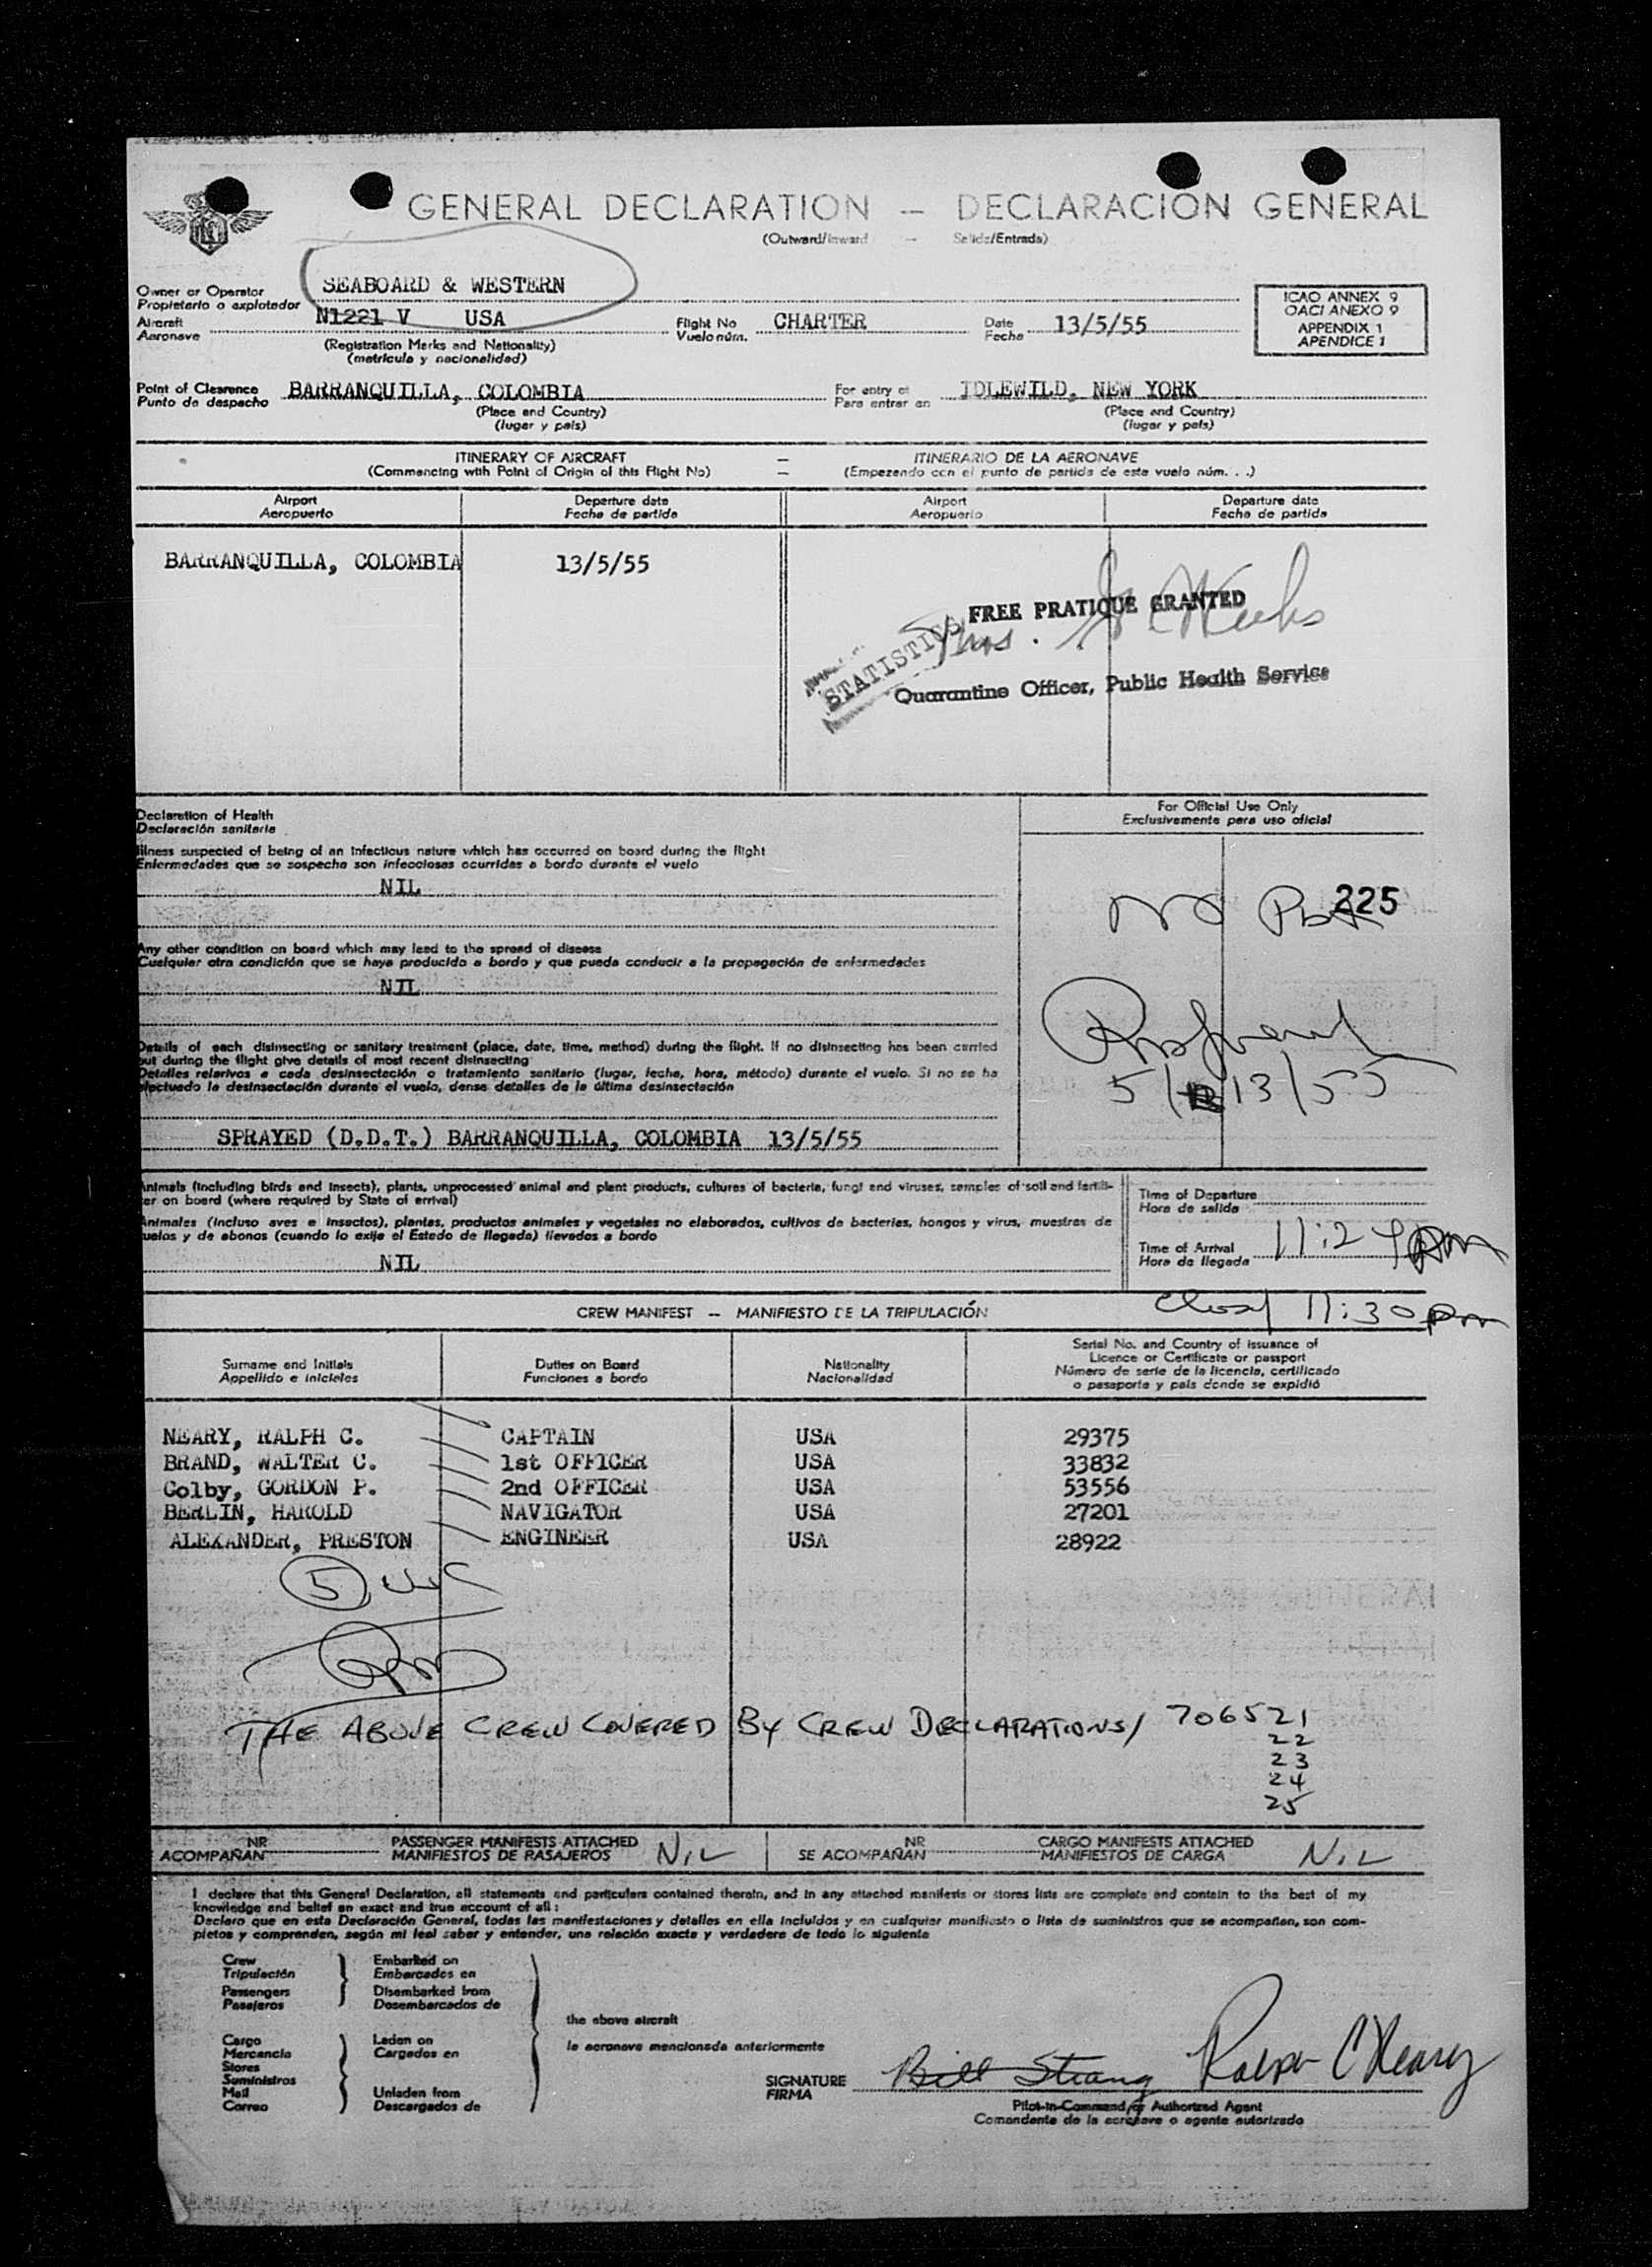 GENERAL DECLARATION — DECLARACION GENERAL
(Outward/Inward — Salida/Entrada)
Owner or Operator SEABOARD & WESTERN
Propietario o explotador
Aircraft N1221 V USA Flight No CHARTER Date 13/5/55
Aeronave Vuelo núm. Fecha
(Registration Marks and Nationality)
(matrícula y nacionalidad)
ICAO ANNEX 9
OACI ANEXO 9
APPENDIX 1
APENDICE 1
Point of Clearence BARRANQUILLA, COLOMBIA For entry at IDLEWILD, NEW YORK
Punto de despacho Para entrar en
(Place and Country) (Place and Country)
(lugar y país) (lugar y país)
ITINERARY OF AIRCRAFT — ITINERARIO DE LA AERONAVE
(Commencing with Point of Origin of this Flight No) — (Empezando con el punto de partida de este vuelo núm. . .)
Airport Departure date Airport Departure date
Aeropuerto Fecha de partida Aeropuerto Fecha de partida
BARRANQUILLA, COLOMBIA 13/5/55
FREE PRATIQUE GRANTED
STATISTICS
Quarantine Officer, Public Health Service
Declaration of Health
Declaración sanitaria
For Official Use Only
Exclusivamente para uso oficial
Illness suspected of being of an infectious nature which has occurred on board during the flight
Enfermedades que se sospecha son infecciosas ocurridas a bordo durante el vuelo
NIL
225
Any other condition on board which may lead to the spread of disease
Cualquier otra condición que se haya producido a bordo y que pueda conducir a la propagación de enfermedades
NIL
Details of each disinsecting or sanitary treatment (place, date, time, method) during the flight. If no disinsecting has been carried
out during the flight give details of most recent disinsecting
Detalles relativos a cada desinsectación o tratamiento sanitario (lugar, fecha, hora, método) durante el vuelo. Si no se ha
efectuado la desinsectación durante el vuelo, dense detalles de la última desinsectación
5/13/55
SPRAYED (D.D.T.) BARRANQUILLA, COLOMBIA 13/5/55
Animals (including birds and insects), plants, unprocessed animal and plant products, cultures of bacteria, fungi and viruses, samples of soil and fertili-
zer on board (where required by State of arrival)
Animales (incluso aves e insectos), plantas, productos animales y vegetales no elaborados, cultivos de bacterias, hongos y virus, muestras de
suelos y de abonos (cuando lo exija el Estado de llegada) llevados a bordo
NIL
Time of Departure
Hora de salida
Time of Arrival 11:24 pm
Hora de llegada
CREW MANIFEST — MANIFIESTO DE LA TRIPULACIÓN
11:30 pm
Surname and Initials Duties on Board Nationality Serial No. and Country of issuance of
Licence or Certificate or passport
Apellido e iniciales Funciones a bordo Nacionalidad Número de serie de la licencia, certificado
o pasaporte y país donde se expidió
NEARY, RALPH C. CAPTAIN USA 29375
BRAND, WALTER C. 1st OFFICER USA 33832
Colby, GORDON P. 2nd OFFICER USA 53556
BERLIN, HAROLD NAVIGATOR USA 27201
ALEXANDER, PRESTON ENGINEER USA 28922
5
THE ABOVE CREW COVERED BY CREW DECLARATIONS/ 706521
22
23
24
25
NR PASSENGER MANIFESTS ATTACHED NIL NR CARGO MANIFESTS ATTACHED NIL
ACOMPAÑAN MANIFIESTOS DE PASAJEROS SE ACOMPAÑAN MANIFIESTOS DE CARGA
I declare that this General Declaration, all statements and particulars contained therein, and in any attached manifests or stores lists are complete and contain to the best of my
knowledge and belief an exact and true account of all :
Declaro que en esta Declaración General, todas las manifestaciones y detalles en ella incluídos y en cualquier manifiesto o lista de suministros que se acompañan, son com-
pletos y comprenden, según mi leal saber y entender, una relación exacta y verdadera de todo lo siguiente
Crew Embarked on
Tripulación Embarcados en
Passengers Disembarked from
Pasajeros Desembarcados de
the above aircraft
Cargo Laden on
Mercancía Cargados en
la aeronave mencionada anteriormente
Stores
Suministros
Mail Unladen from
Correo Descargados de
SIGNATURE Bill Strang Ralph C Neary
FIRMA
Pilot-in-Command or Authorized Agent
Comandante de la aeronave o agente autorizado